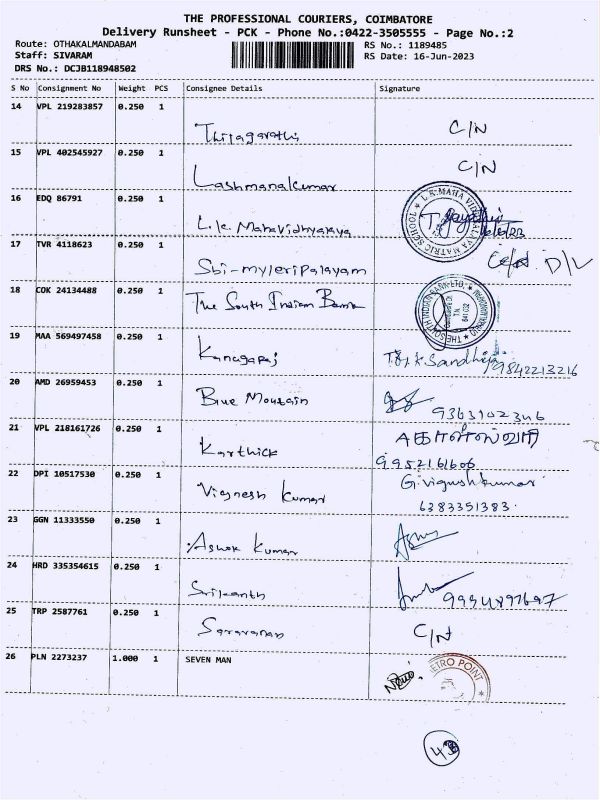 THE PROFESSIONAL COURIERS, COIMBATORE
Delivery Runsheet - PCK - Phone No.:0422-3505555 - Page No.:2
Route: OTHAKALMANDABAM RS No.: 1189485
Staff: SIVARAM RS Date: 16-Jun-2023
DRS No.: DCJB118948502
S No Consignment No Weight PCS Consignee Details Signature
14 VPL 219283857 0.250 1
Thiyagarathi C/N
15 VPL 402545927 0.250 1
Lashmanakumar C/N
16 EDQ 86791 0.250 1
L.K. Mahavidhyalaya
17 TVR 4118623 0.250 1
Sbi-myleripalayam D/L
18 COK 24134488 0.250 1
The South Indian Bank
THE SOUTH INDIAN BANK LTD.
19 MAA 569497458 0.250 1
Kanagaraj K Sandhiya
9842213216
20 AMD 26959453 0.250 1
Blue Mountain 9363102346
21 VPL 218161726 0.250 1
Karthick
9952161606
22 DPI 10517530 0.250 1
Vignesh Kumar G.vignushkumar
6383351383
23 GGN 11333550 0.250 1
Ashok Kumar
24 HRD 335354615 0.250 1
Srikanth 9994897697
25 TRP 2587761 0.250 1
Saravanan C/N
26 PLN 2273237 1.000 1 SEVEN MAN
METRO POINT